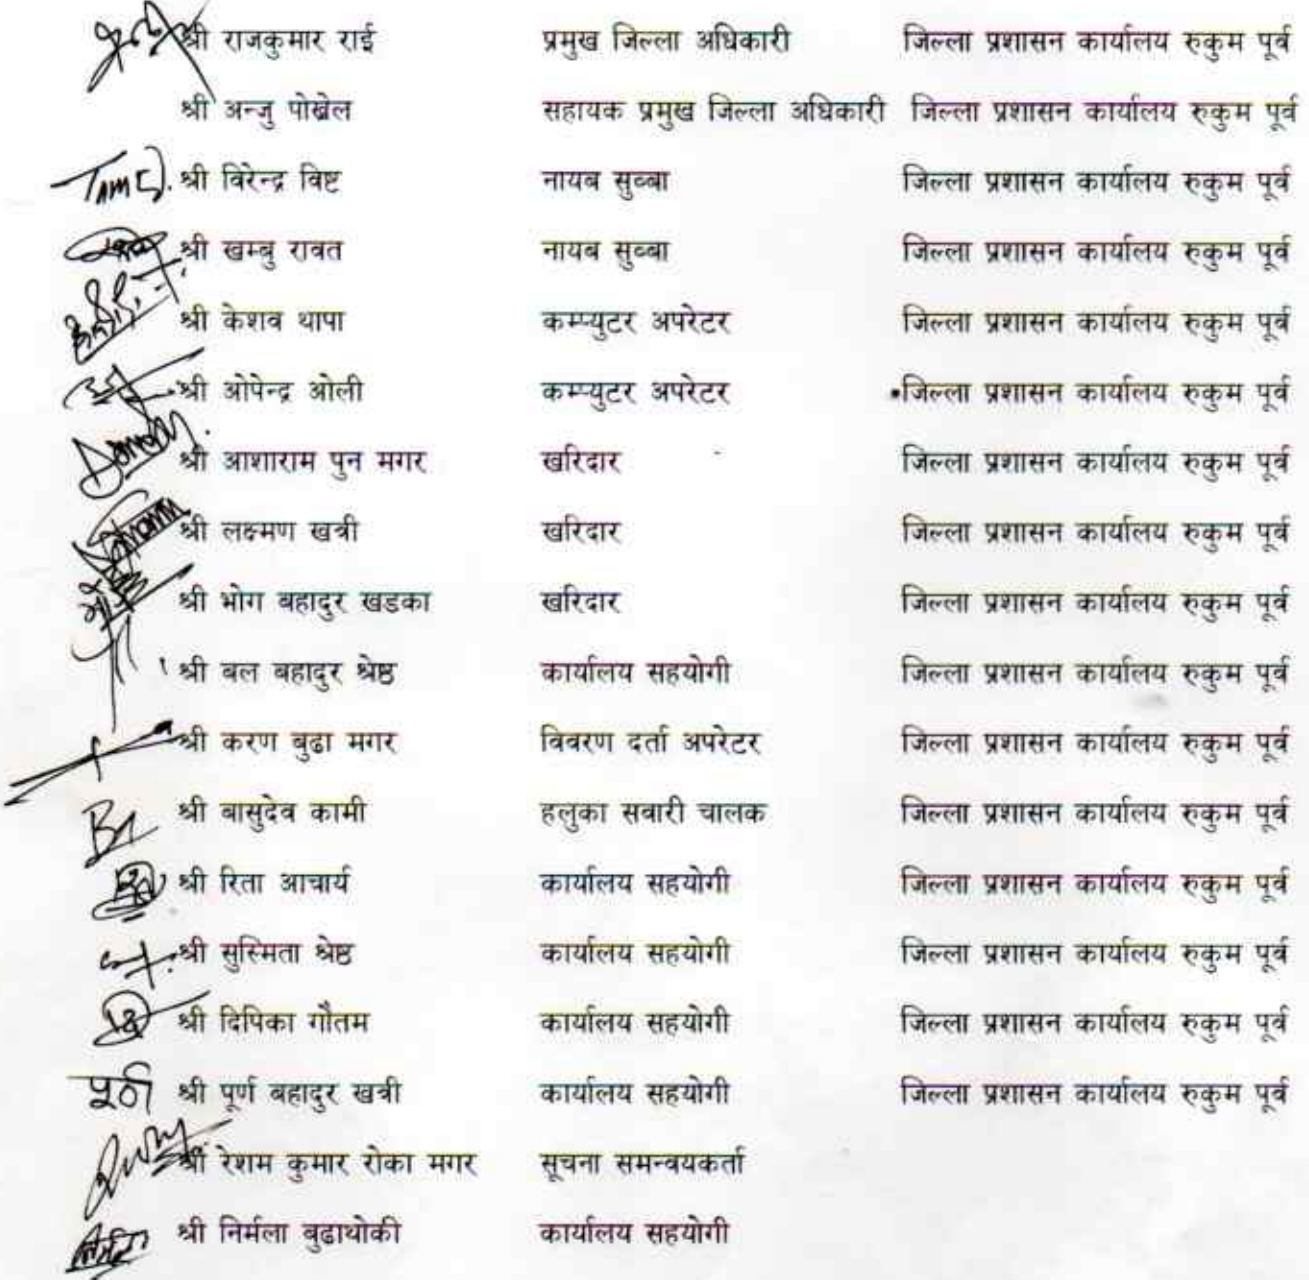 श्री राजकुमार राई प्रमुख जिल्ला अधिकारी जिल्ला प्रशासन कार्यालय रुकुम पूर्व
श्री अन्जु पोखेल सहायक प्रमुख जिल्ला अधिकारी जिल्ला प्रशासन कार्यालय रुकुम पूर्व
श्री विरेन्द्र विष्ट नायब सुब्बा जिल्ला प्रशासन कार्यालय रुकुम पूर्व
श्री खम्बु रावत नायब सुब्बा जिल्ला प्रशासन कार्यालय रुकुम पूर्व
श्री केशव थापा कम्प्युटर अपरेटर जिल्ला प्रशासन कार्यालय रुकुम पूर्व
श्री ओपेन्द्र ओली कम्प्युटर अपरेटर जिल्ला प्रशासन कार्यालय रुकुम पूर्व
श्री आशाराम पुन मगर खरिदार जिल्ला प्रशासन कार्यालय रुकुम पूर्व
श्री लक्ष्मण खत्री खरिदार जिल्ला प्रशासन कार्यालय रुकुम पूर्व
श्री भोग बहादुर खडका खरिदार जिल्ला प्रशासन कार्यालय रुकुम पूर्व
श्री बल बहादुर श्रेष्ठ कार्यालय सहयोगी जिल्ला प्रशासन कार्यालय रुकुम पूर्व
श्री करण बुढा मगर विवरण दर्ता अपरेटर जिल्ला प्रशासन कार्यालय रुकुम पूर्व
श्री बासुदेव कामी हलुका सवारी चालक जिल्ला प्रशासन कार्यालय रुकुम पूर्व
श्री रिता आचार्य कार्यालय सहयोगी जिल्ला प्रशासन कार्यालय रुकुम पूर्व
श्री सुस्मिता श्रेष्ठ कार्यालय सहयोगी जिल्ला प्रशासन कार्यालय रुकुम पूर्व
श्री दिपिका गौतम कार्यालय सहयोगी जिल्ला प्रशासन कार्यालय रुकुम पूर्व
पूर्ण श्री पूर्ण बहादुर खत्री कार्यालय सहयोगी जिल्ला प्रशासन कार्यालय रुकुम पूर्व
श्री रेशम कुमार रोका मगर सूचना समन्वयकर्ता
श्री निर्मला बुढाथोकी कार्यालय सहयोगी